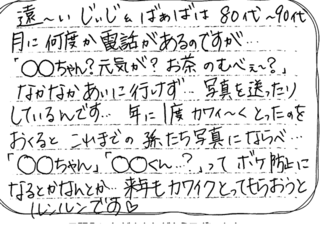 遠〜いじぃじ&ばぁばは80代〜90代
月に何度か電話があるのですが…
「○○ちゃん?元気が? お茶のむべぇ〜?」
なかなかあいに行けず… 写真を送ったり
しているんです… 年に1度カワィ〜くとったのを
おくると これまでの孫たち写真にならべ…
「○○ちゃん」「○○くん…?」って ボケ防止に
なるとかなんとか… 来年もカワイクとってもらおうと
ルンルンです♡